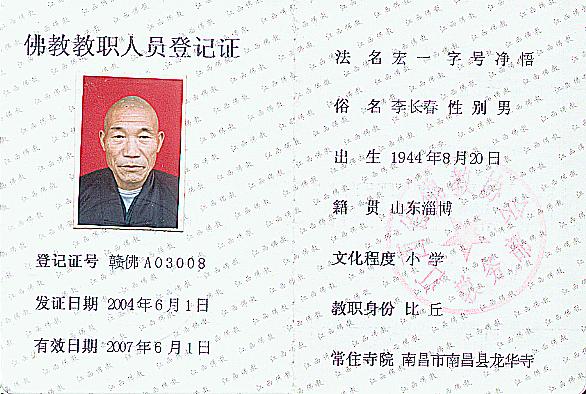 佛教教职人员登记证
登记证号 赣佛A03008
发证日期 2004年6月1日
有效日期 2007年6月1日
法名 宏一 字号 净悟
俗名 李长春 性别 男
出生 1944年8月20日
籍贯 山东淄博
文化程度 小学
教职身份 比丘
常住寺院 南昌市南昌县龙华寺